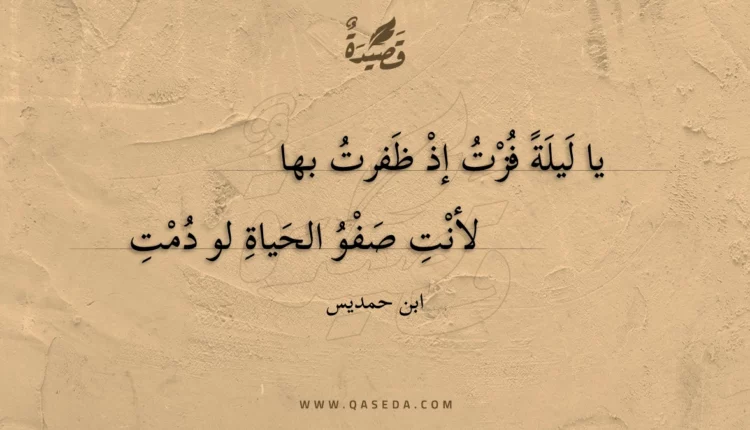 قَصِيْدَةٌ
يا لَيلَةً فُزْتُ إذْ ظَفرتُ بها
لأنْتِ صَفْوُ الحَياةِ لو دُمْتِ
ابن حمديس
WWW.QASEDA.COM